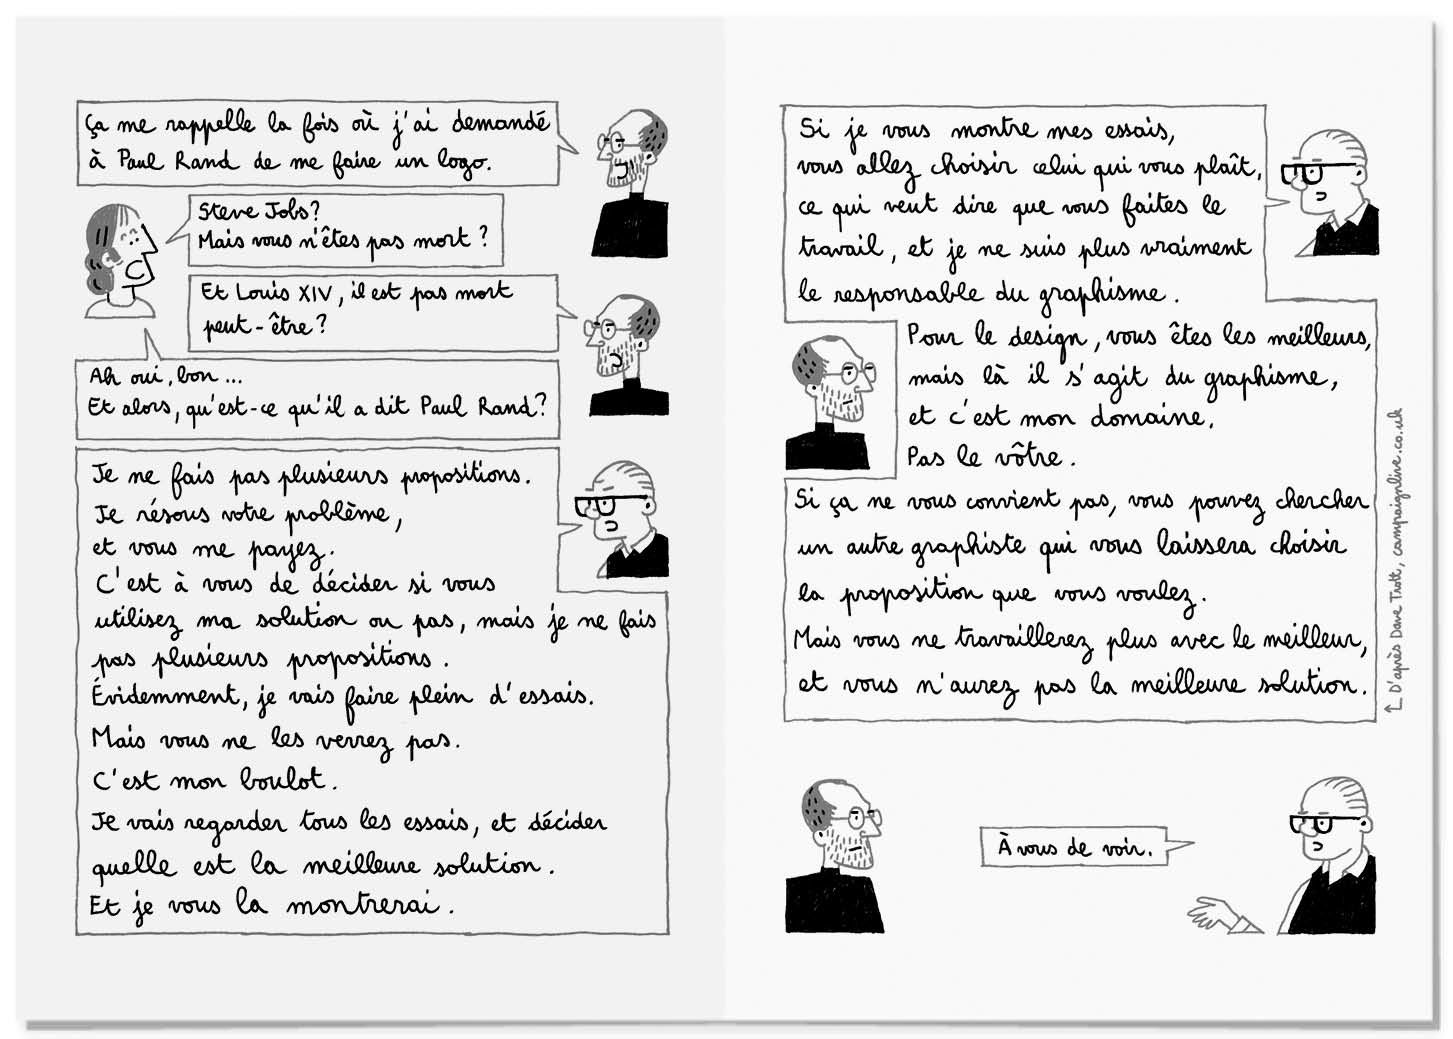 Ça me rappelle la fois où j'ai demandé
à Paul Rand de me faire un logo.
Steve Jobs?
Mais vous n'êtes pas mort ?
Et Louis XIV, il est pas mort
peut-être ?
Ah oui, bon ...
Et alors, qu'est-ce qu'il a dit Paul Rand?
Je ne fais pas plusieurs propositions.
Je résous votre problème,
et vous me payez.
C'est à vous de décider si vous
utilisez ma solution ou pas, mais je ne fais
pas plusieurs propositions.
Évidemment, je vais faire plein d'essais.
Mais vous ne les verrez pas.
C'est mon boulot.
Je vais regarder tous les essais, et décider
quelle est la meilleure solution.
Et je vous la montrerai.
Si je vous montre mes essais,
vous allez choisir celui qui vous plaît,
ce qui veut dire que vous faites le
travail, et je ne suis plus vraiment
le responsable du graphisme.
Pour le design, vous êtes les meilleurs,
mais là il s'agit du graphisme,
et c'est mon domaine.
Pas le vôtre.
Si ça ne vous convient pas, vous pouvez chercher
un autre graphiste qui vous laissera choisir
la proposition que vous voulez.
Mais vous ne travaillerez plus avec le meilleur,
et vous n'aurez pas la meilleure solution.
D'après Dave Trott, campaignlive.co.uk
À vous de voir.